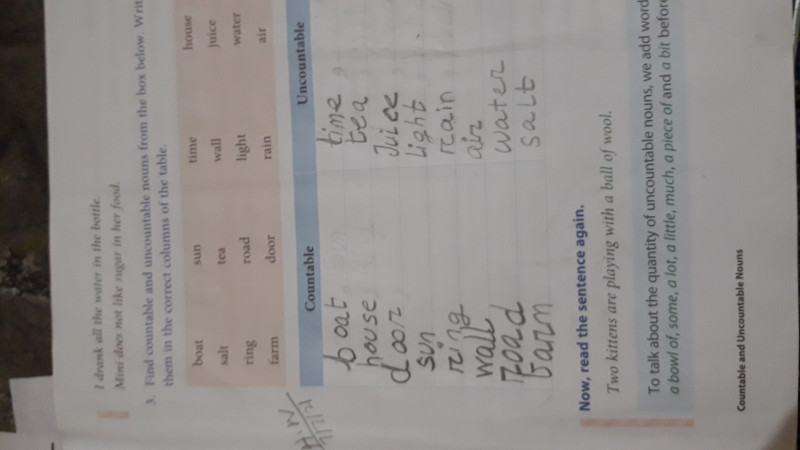 I drank all the water in the bottle.
Mini does not like sugar in her food.
3. Find countable and uncountable nouns from the box below. Writ
them in the correct columns of the table.
boat sun time house
salt tea wall juice
ring road light water
farm door rain air
Countable Uncountable
boat time
house tea
door Juice
sun light
ring rain
wall air
road water
farm salt
Now, read the sentence again.
Two kittens are playing with a ball of wool.
To talk about the quantity of uncountable nouns, we add word
a bowl of, some, a lot, a little, much, a piece of and a bit before
Countable and Uncountable Nouns